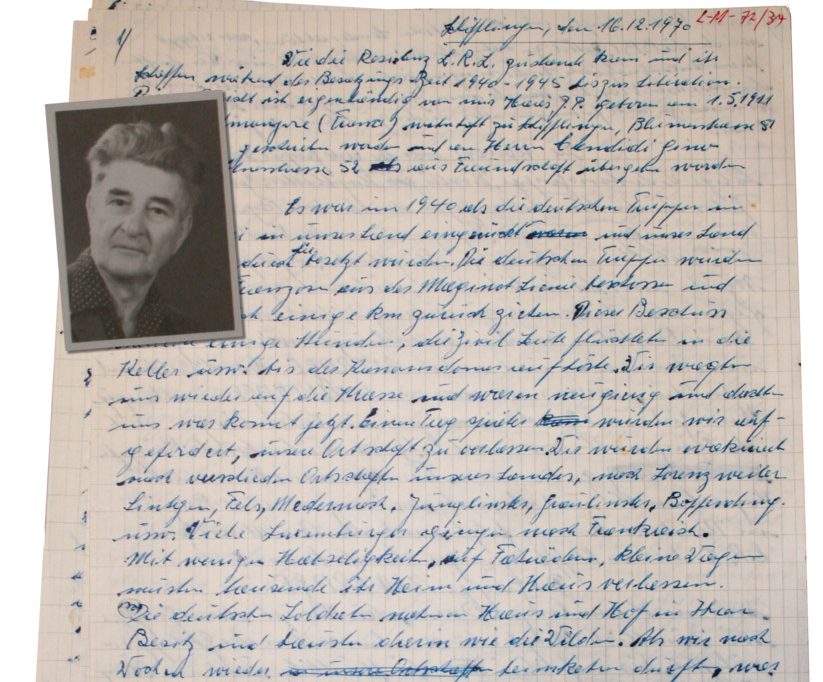 Schifflingen, den 16.12.1970 L-M-72/34
1/
Wie die Residenz L.R.L. zustande kam und ihr
Schaffen während der Besetzungs Zeit 1940-1945 bis zur Liberation.
ist eigenhändig von mir geboren am 1.5.1911
(France) wohnhaft zu Schifflingen, Blumenstrasse 51
geschrieben worden und an Herrn Candidi
52 aus Freundschaft übergeben worden
Es war im 1940 als die deutschen Truppen im
in unser Land eingerückt und unser Land
durch sie besetzt wurden. Die deutschen Truppen wurden
Franzosen aus der Maginot Linie beschossen und
einige km zurück ziehen. Dieser Beschuss
einige Stunden, die Zivil Leute flüchteten in die
Keller usw. bis der Kanonendonner aufhörte. Wir wagten
uns wieder auf die Strasse und waren neugierig und dachten
uns was kommt jetzt. Einen Tag später wurden wir auf-
gefordert, unsere Ortschaft zu verlassen. Wir wurden evakuiert
nach Ortschaften unseres Landes, nach Lorenzweiler
Lintgen, Fels, Medernach, Junglinster, Graulinster, Boffending
usw. Viele Luxemburger gingen nach Frankreich.
Mit wenigen Habseligkeiten, auf Fahrräder, kleine Wagen
mussten tausende ihr Heim und Haus verlassen.
Die deutschen Soldaten nahmen Haus und Hof in
Besitz und hausten darin wie die Wilden. Als wir nach
Wochen wieder heimkehren durften, war